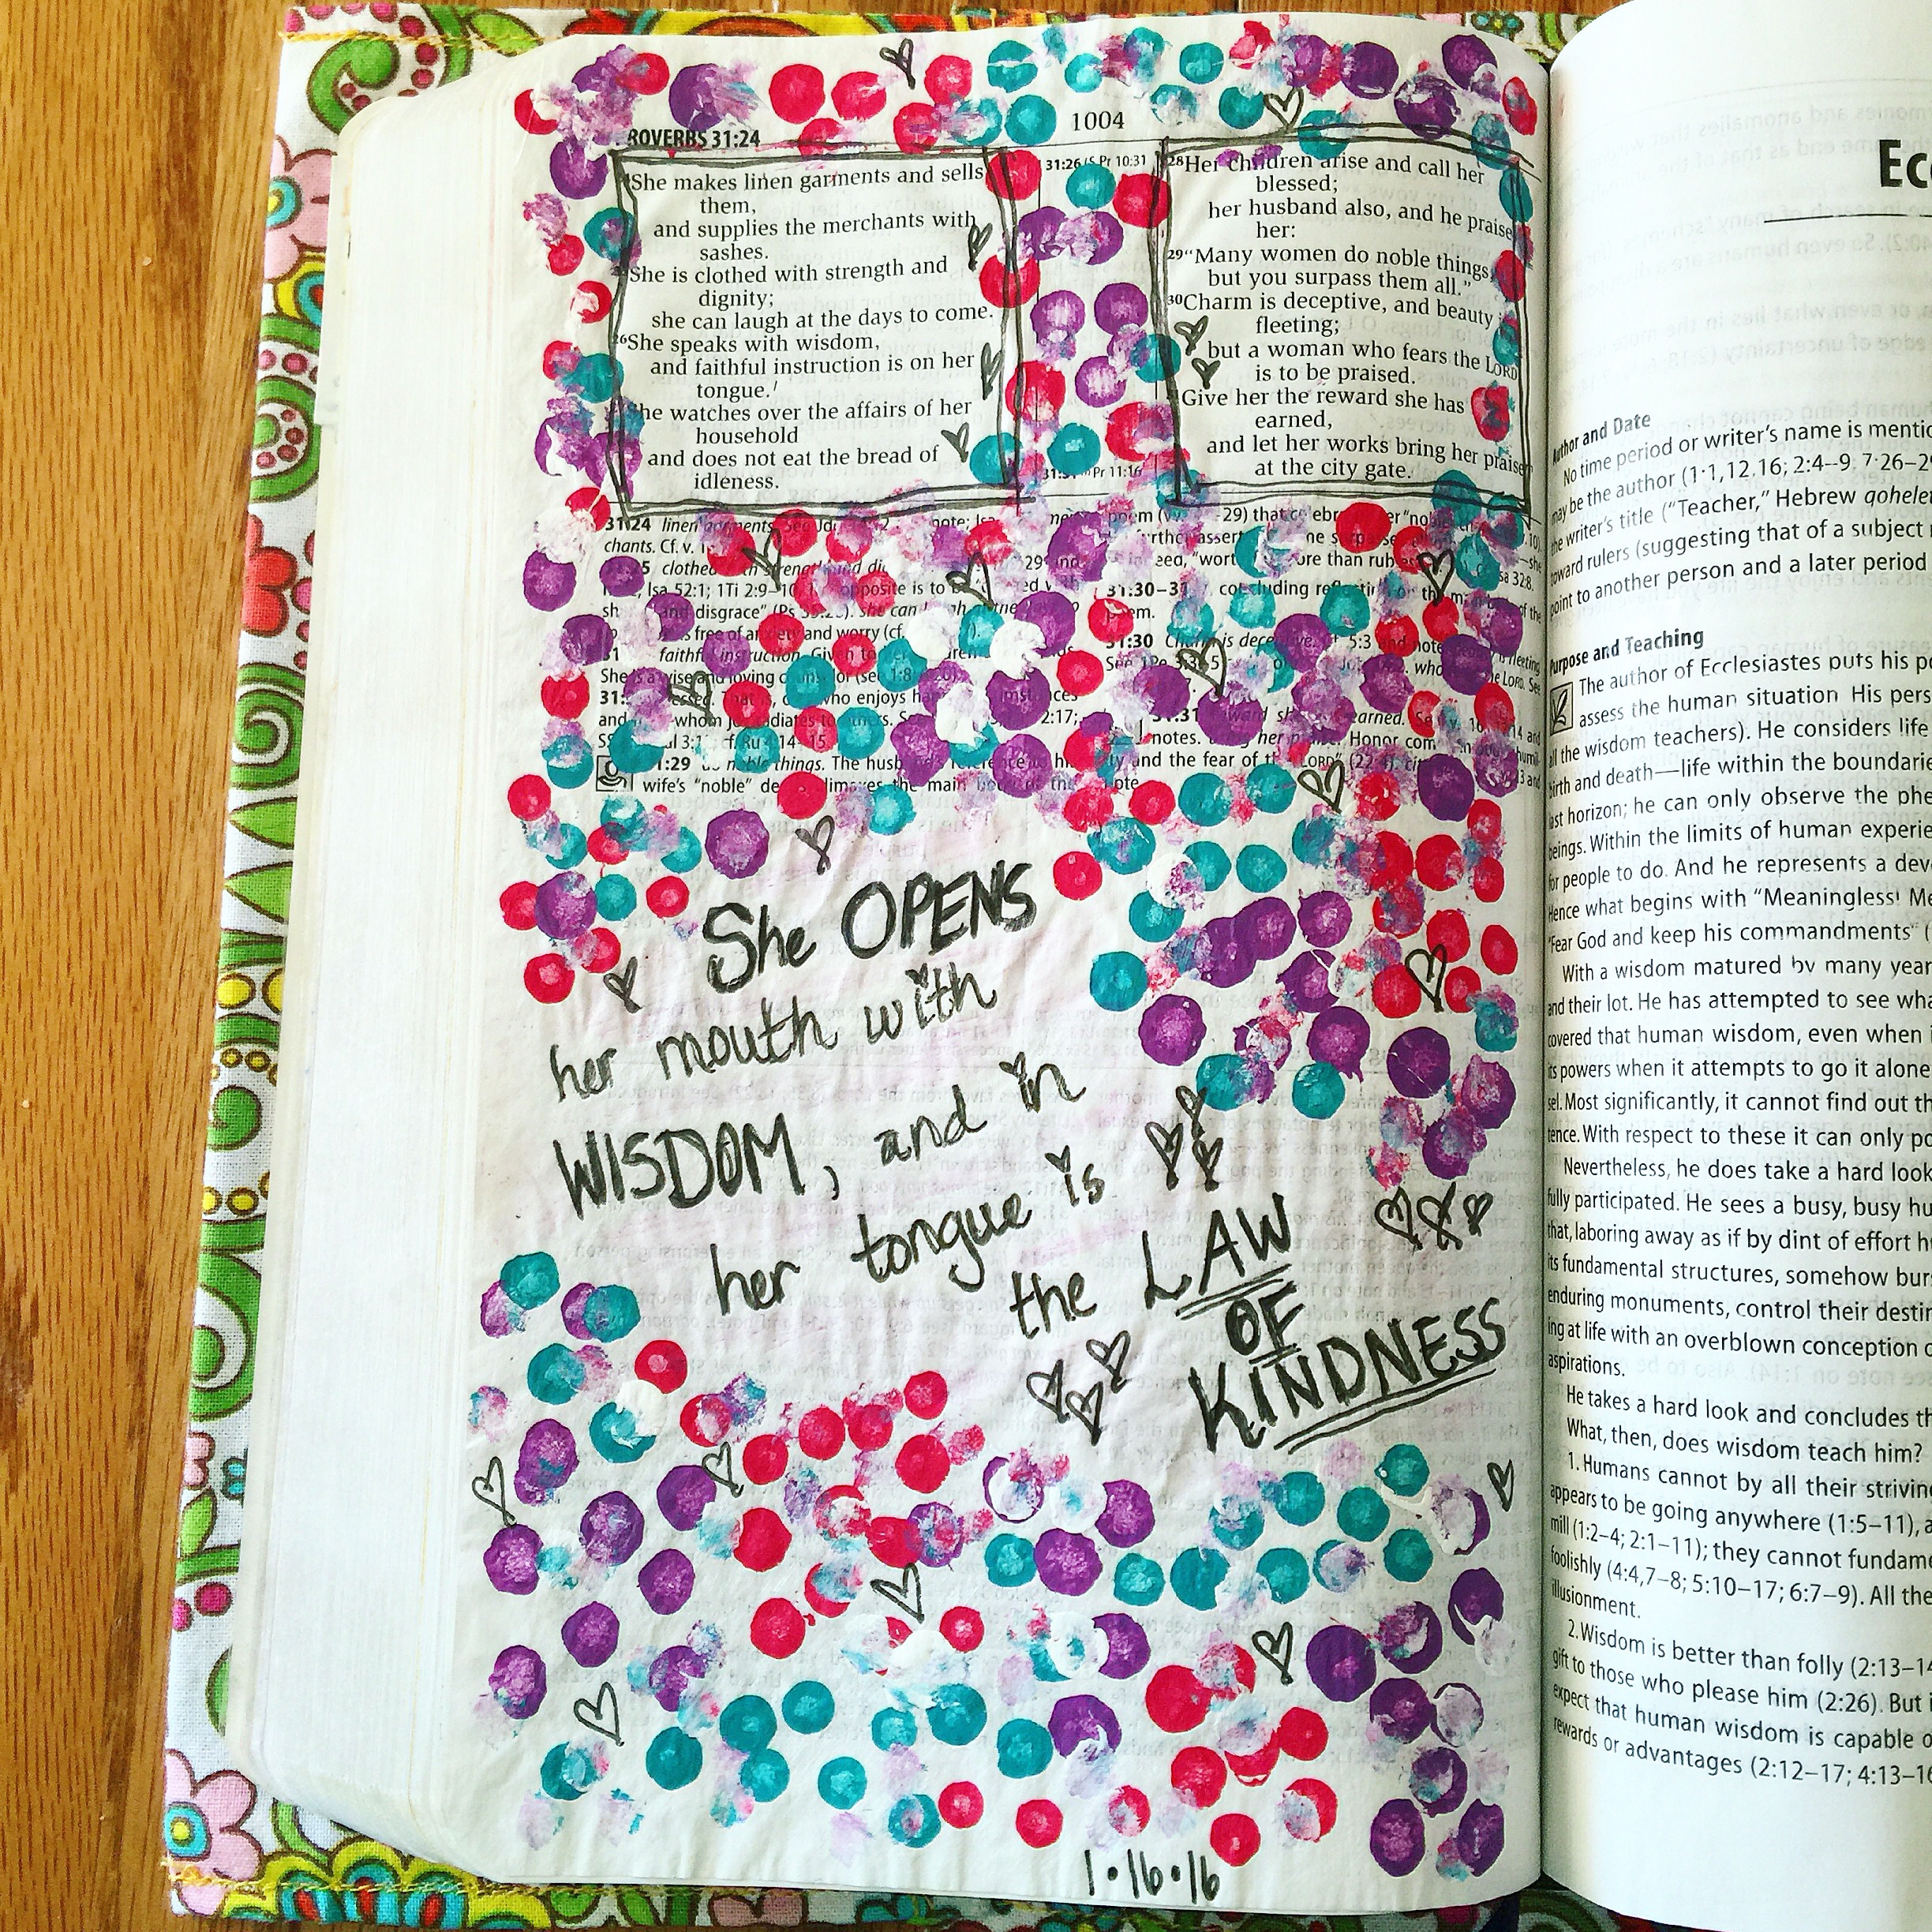 ROVERBS 31:24
1004
She makes linen garments and sells
them,
and supplies the merchants with
sashes.
She is clothed with strength and
dignity;
she can laugh at the days to come.
26She speaks with wisdom,
and faithful instruction is on her
tongue.
she watches over the affairs of her
household
and does not eat the bread of
idleness.
31:26 S Pr 10:31
Pr 11:16
28Her children arise and call her
blessed;
her husband also, and he praise
her:
29"Many women do noble things,
but you surpass them all."
30Charm is deceptive, and beauty
fleeting;
but a woman who fears the LORD
is to be praised.
Give her the reward she has
earned,
and let her works bring her praise
at the city gate.
31:24 linen garments
chants. Cf. v.
clothed
Isa 52:1; 1Ti 2:9-10
disgrace"
free of anxiety and worry (cf.
faithful instruction. Given
She is a wise and loving
31: who enjoys
and whom
1:29 noble things. The
wife's "noble" the main
31:30-31 concluding
poem.
31:30 Charm is
31:31
notes. Honor
and the fear of the LORD
She OPENS
her mouth with
WISDOM, and in
her tongue is
the LAW
OF
KINDNESS
1•16•16
Ec
Author and Date
No time period or writer's name is mentio
may be the author (1:1,12,16; 2:4-9; 7:26-2
the writer's title ("Teacher," Hebrew qohelet
toward rulers (suggesting that of a subject
point to another person and a later period
Purpose and Teaching
The author of Ecclesiastes puts his po
assess the human situation His pers
all the wisdom teachers). He considers life
birth and death—life within the boundarie
last horizon; he can only observe the phe
beings. Within the limits of human experie
for people to do. And he represents a dev
Hence what begins with "Meaningless! Me
"Fear God and keep his commandments" (
With a wisdom matured by many year
and their lot. He has attempted to see wha
covered that human wisdom, even when i
its powers when it attempts to go it alone
sel. Most significantly, it cannot find out th
tence. With respect to these it can only po
Nevertheless, he does take a hard look
fully participated. He sees a busy, busy hu
that, laboring away as if by dint of effort h
its fundamental structures, somehow bur
enduring monuments, control their destin
ing at life with an overblown conception o
aspirations.
He takes a hard look and concludes th
What, then, does wisdom teach him?
1. Humans cannot by all their strivin
appears to be going anywhere (1:5-11), a
mill (1:2-4; 2:1-11); they cannot fundame
foolishly (4:4,7-8; 5:10-17; 6:7-9). All the
illusionment.
2. Wisdom is better than folly (2:13-14
gift to those who please him (2:26). But i
expect that human wisdom is capable o
rewards or advantages (2:12-17; 4:13-16